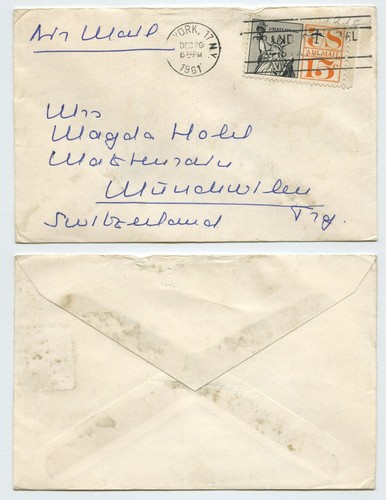 Air Mail
YORK, 17 N.Y.
DEC 20
1961
US
AIR MAIL
15¢
Mrs
Magda Hohl
Matzenrain
Münchwilen
Switzerland Trg.